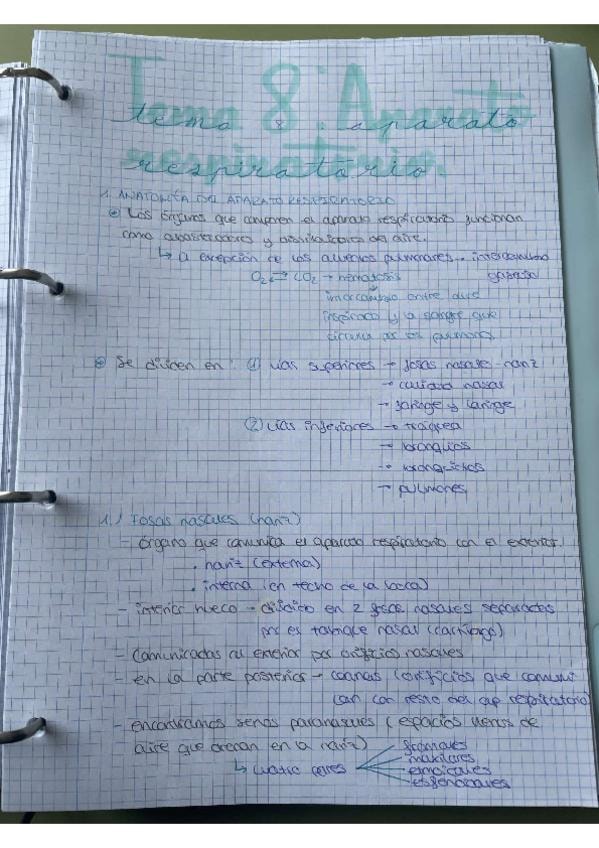 Tema 8: Aparato
respiratorio.
1. ANATOMÍA DEL APARATO RESPIRATORIO
Los órganos que componen el aparato respiratorio funcionan
como y distribuidores del aire.
↳ a excepción de los alveolos pulmonares → intercambio
gaseoso
O₂ ⇄ CO₂ → hematosis
intercambio entre aire
inspirado y la sangre que
circula por los pulmones
Se dividen en: ① vías superiores → fosas nasales - nariz
→ cavidad nasal
→ faringe y laringe
② vías inferiores → tráquea
→ bronquios
→ bronquiolos
→ pulmones
1.1 Fosas nasales (nariz)
- órgano que comunica el aparato respiratorio con el exterior.
. nariz (externa)
. interna (en techo de la boca)
- interior hueco - dividido en 2 fosas nasales separadas
por el tabique nasal (cartílago)
- Comunicadas al exterior por orificios nasales
- en la parte posterior → coanas (orificios que comuni
can con resto del ap respiratorio)
- encontramos senos paranasales (espacios llenos de
aire que drenan en la nariz)
↳ cuatro pares
frontales
maxilares
etmoidales
esfenoidales